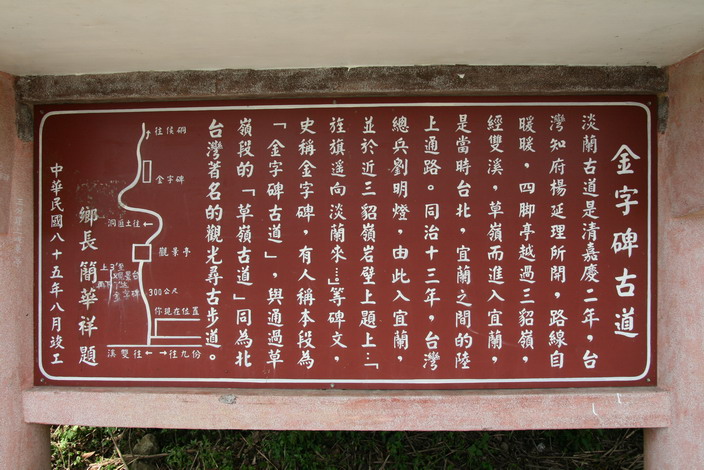 金字碑古道
淡蘭古道是清嘉慶二年，台
灣知府楊延理所開，路線自
暖暖，四脚亭越過三貂嶺，
經雙溪，草嶺而進入宜蘭，
是當時台北，宜蘭之間的陸
上通路。同治十三年，台灣
總兵劉明燈，由此入宜蘭，
並於近三貂嶺岩壁上題上：「
旌旗遥向淡蘭來…」等碑文，
史稱金字碑，有人稱本段為
「金字碑古道」，與通過草
嶺段的「草嶺古道」同為北
台灣著名的觀光尋古步道。
往侯硐
金字碑
洞匪土往
觀景亭
300公尺
你現在位置
溪雙往
往九份
鄉長簡華祥題
中華民國八十五年八月竣工